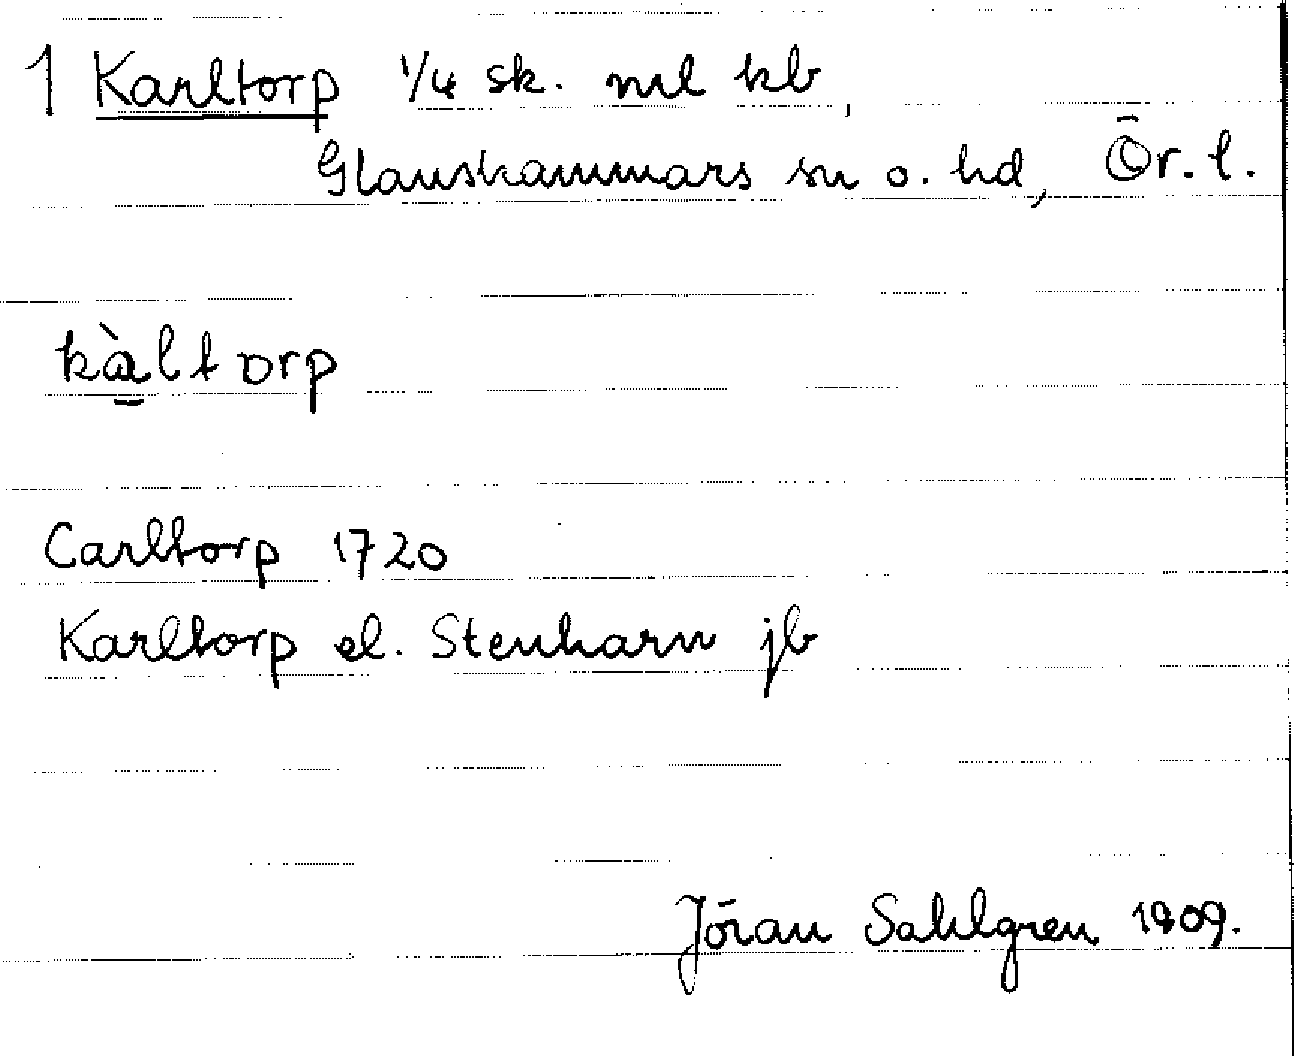 1 Karltorp 1/4 sk. ml kb,
Glanshammars sn o. hd, Ör. l.
kàltorp
Carltorp 1720
Karltorp el. Stenharn jb
Jöran Sahlgren 1909.